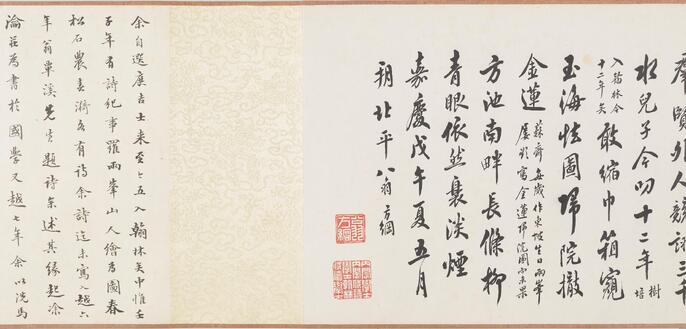 羣賢外人競詠三千
水兒子今叨十二年樹培
入翰林今十二年矣敢縮巾箱窺
玉海恍圖歸院撤
金蓮蘇齋每歲作東坡生日兩峯屢欲寫金蓮歸院圖而未果
方池南畔長條柳
青眼依然裊淡煙
嘉慶戊午夏五月
朔北平翁方綱
余自選庶吉士來至今五入翰林矣中惟壬
子年有詩紀事羅兩峯山人繪為圖春
松石農漪各有詩余詩迄未寫入越六
年翁覃溪先生題詩並述其緣起涂
瀹莊為書於國學又越七年余以洗馬